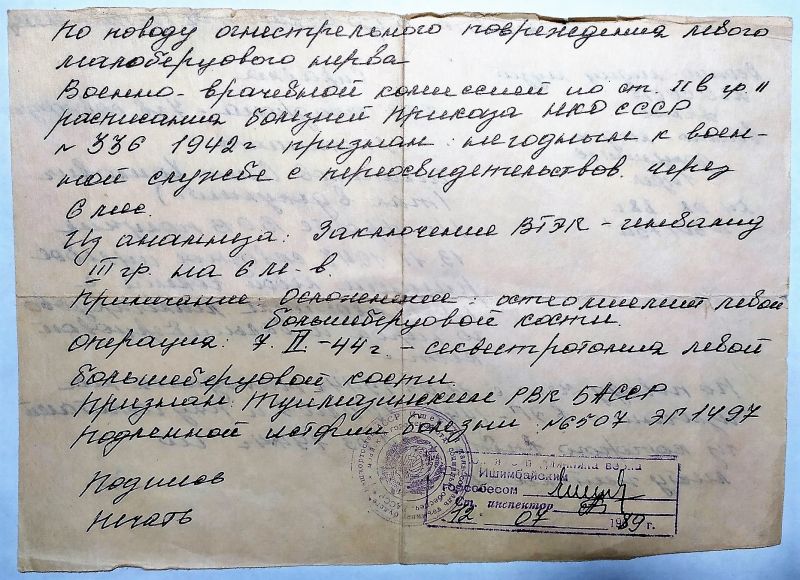 По поводу огнестрельного повреждения левого
малоберцового нерва
Военно-врачебной комиссией по ст. II в гр. II
расписания болезней приказа НКО СССР
№ 336 1942 г признан: негодным к воен-
ной службе с переосвидетельствов. через
6 мес.
Из анамнеза: Заключение ВТЭК - инвалид
III гр. на 6 м-в.
Примечание: Осложнение: остеомиелит левой
большеберцовой кости.
операция: 7. II - 44 г. - секвестротомия левой
большеберцовой кости.
Признан: Туймазинским РВК БАССР
Подленной истории болезни: №6507 ЭГ 1497
Подписов
Печать
верна
Ишимбайским
горсобесом
Ст. инспектор
12. 07 1989 г.